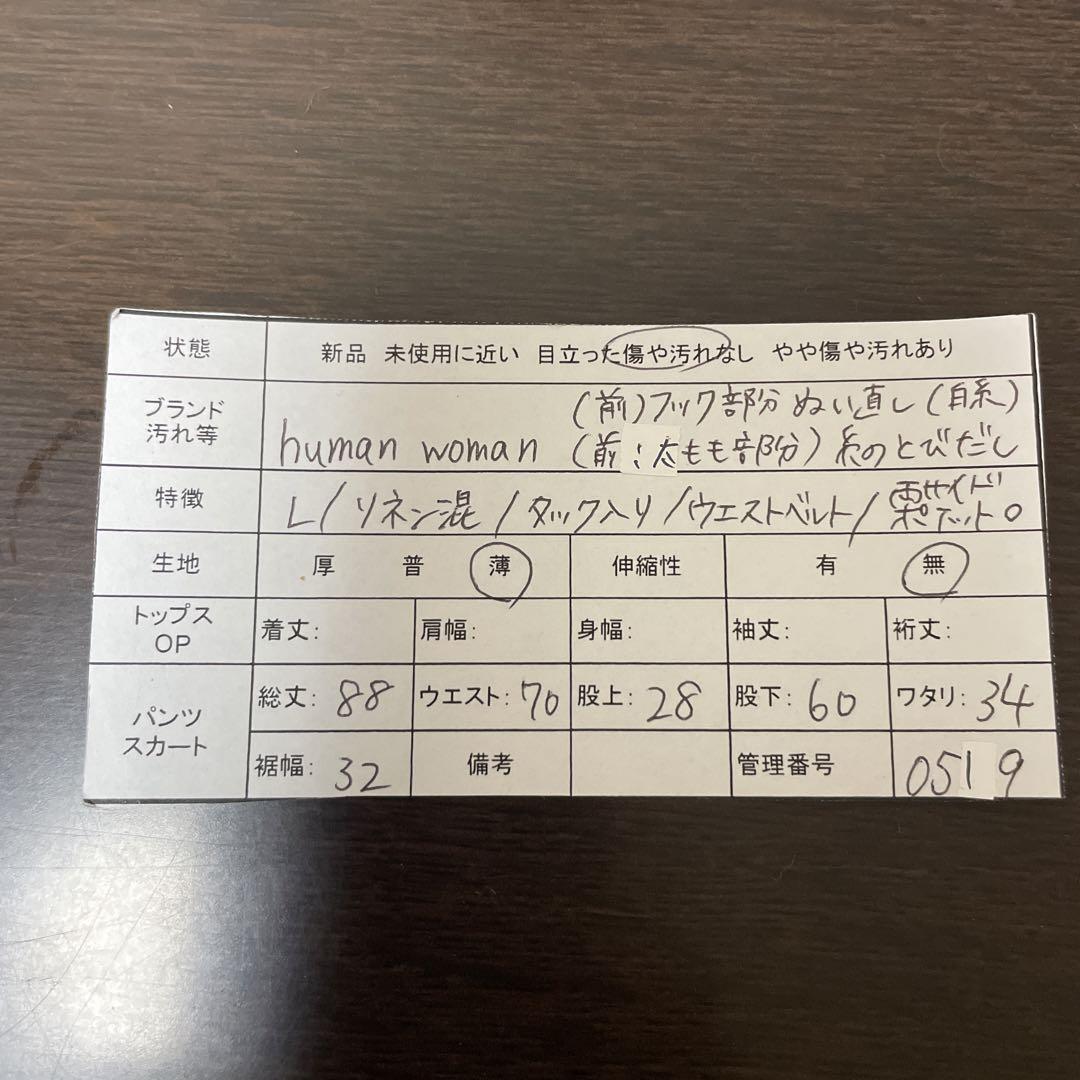 状態 新品 未使用に近い 目立った傷や汚れなし やや傷や汚れあり
ブランド
汚れ等
(前)フック部分 ぬい直し(白糸)
human woman (前:太もも部分)糸のとびだし
特徴 L/リネン混/タック入り/ウエストベルト/両サイド
ポケット○
生地 厚 普 薄 伸縮性 有 無
トップス
OP
着丈: 肩幅: 身幅: 袖丈: 裄丈:
パンツ
スカート
総丈:88 ウエスト:70 股上:28 股下:60 ワタリ:34
裾幅:32 備考 管理番号 0519